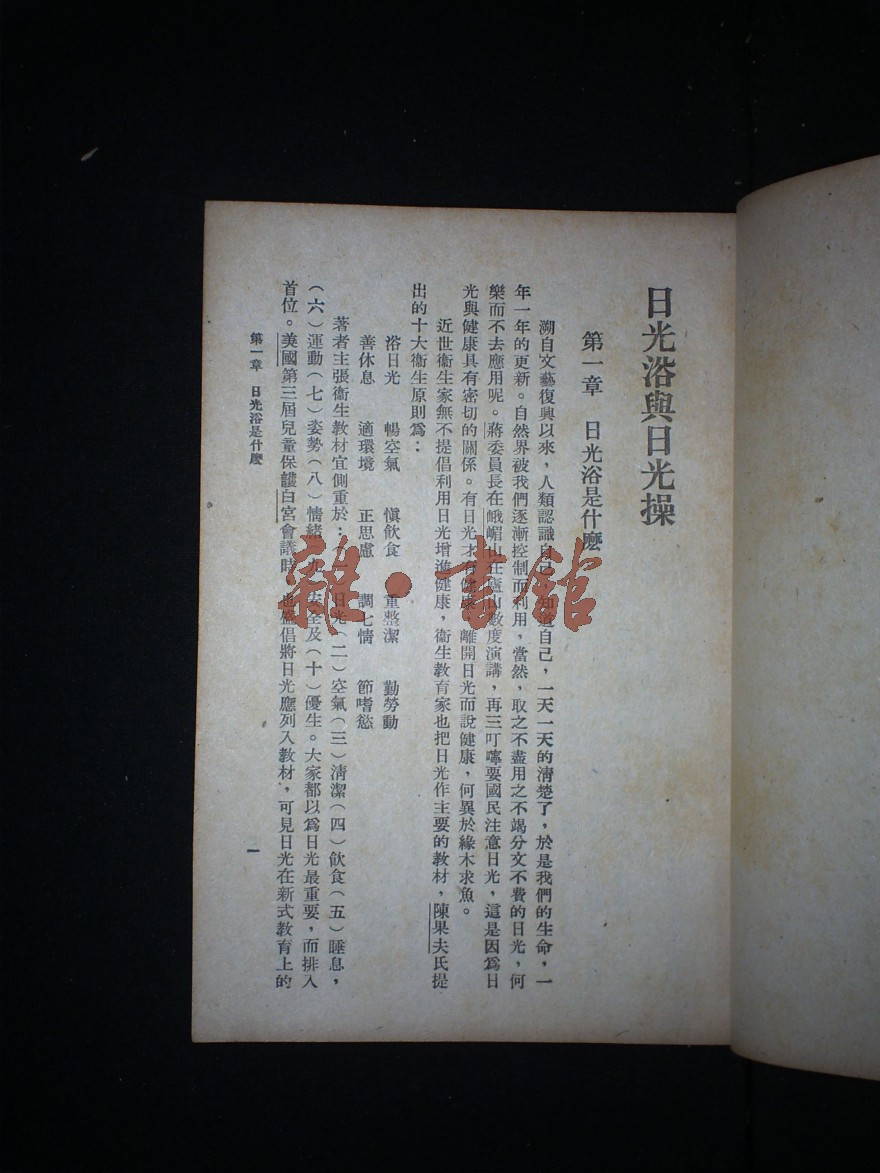 日光浴與日光操
第一章 日光浴是什麽
溯自文藝復興以來，人類認識自己，知道自己，一天一天的清楚了，於是我們的生命，一
年一年的更新。自然界被我們逐漸控制而利用，當然，取之不盡用之不竭分文不費的日光，何
樂而不去應用呢。蔣委員長在峨嵋山在廬山數度演講，再三叮嚀要國民注意日光，這是因爲日
光與健康具有密切的關係。有日光才有健康，離開日光而說健康，何異於緣木求魚。
近世衛生家無不提倡利用日光增進健康，衛生教育家也把日光作主要的教材，陳果夫氏提
出的十大衛生原則爲：
浴日光 暢空氣 愼飲食 重整潔 勤勞動
善休息 適環境 正思慮 調七情 節嗜慾
著者主張衛生教材宜側重於：（一）日光（二）空氣（三）淸潔（四）飲食（五）睡息，
（六）運動（七）姿勢（八）情緒（九）安全及（十）優生。大家都以爲日光最重要，而排入
首位。美國第三屆兒童保護白宮會議時，也盛倡將日光應列入教材，可見日光在新式教育上的
第一章 日光浴是什麽
一
雜·書館